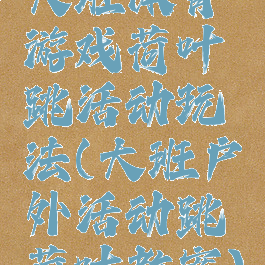 大班体育
游戏荷叶
跳活动玩
法(大班户
外活动跳
荷叶教案)